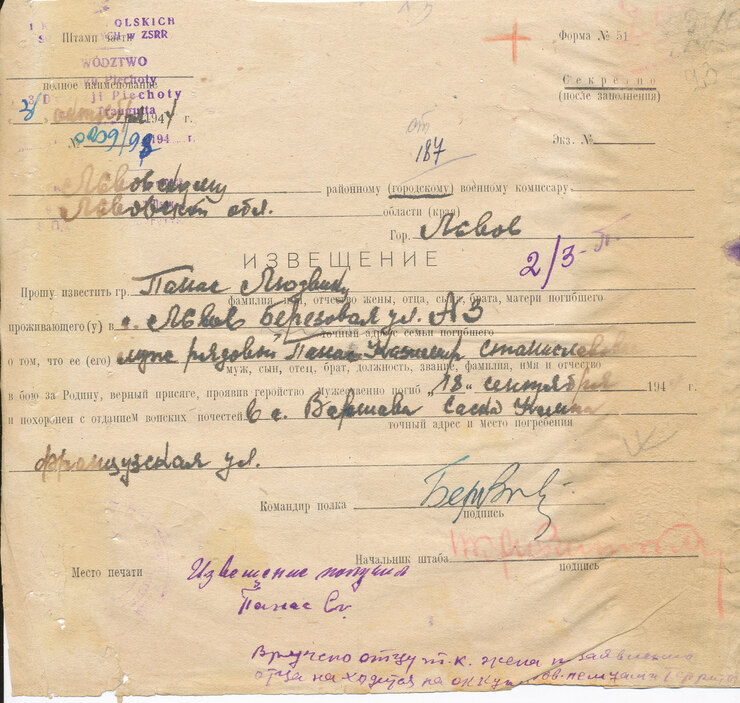 OLSKICH
w ZSRR
Штамп части
Форма № 51
WÓDZTWO
Piechoty
полное наименование
Секретно
(после заполнения)
ji Piechoty
194 г.
№ 194 г.
Экз. №
от
187
Львовскому районному (городскому) военному комиссару
Львовской обл. области (края)
Гор. Львов
ИЗВЕЩЕНИЕ
2/3-
Прошу известить гр. Панас Людвику
фамилия, имя, отчество жены, отца, сына, брата, матери погибшего
проживающего(у) в г. Львов Березовая ул. А3
точный адрес семьи погибшего
о том, что ее (его) муж рядовый Панас Казимир Станиславов
муж, сын, отец, брат, должность, звание, фамилия, имя и отчество
в бою за Родину, верный присяге, проявив геройство и мужество погиб „18" сентября 194 г.
и похоронен с отданием воинских почестей в г. Варшава Саска Кемпа
точный адрес и место погребения
Французская ул.
Командир полка
подпись
Начальник штаба
подпись
Место печати
Извещение получил
Панас Ст.
Вручено отцу т.к. жена по заявлению
отца находится на оккупиров. немцами